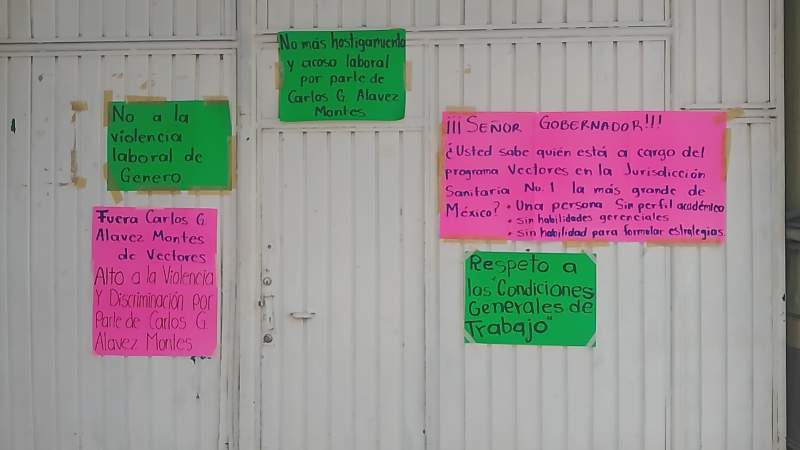 No más hostigamiento
y acoso laboral
por parte de
Carlos G. Alavez
Montes
No a la
violencia
laboral de
Genero
Fuera Carlos G.
Alavez Montes
de Vectores
Alto a la Violencia
Y Discriminación por
Parte de Carlos G.
Alavez Montes
¡¡¡SEÑOR GOBERNADOR!!!
¿Usted sabe quién está a cargo del
programa Vectores en la Jurisdicción
Sanitaria No. 1 la más grande de
México? • Una persona Sin perfil académico
• sin habilidades gerenciales
• sin habilidad para formular estrategias
Respeto a
las "Condiciones
Generales de
Trabajo"